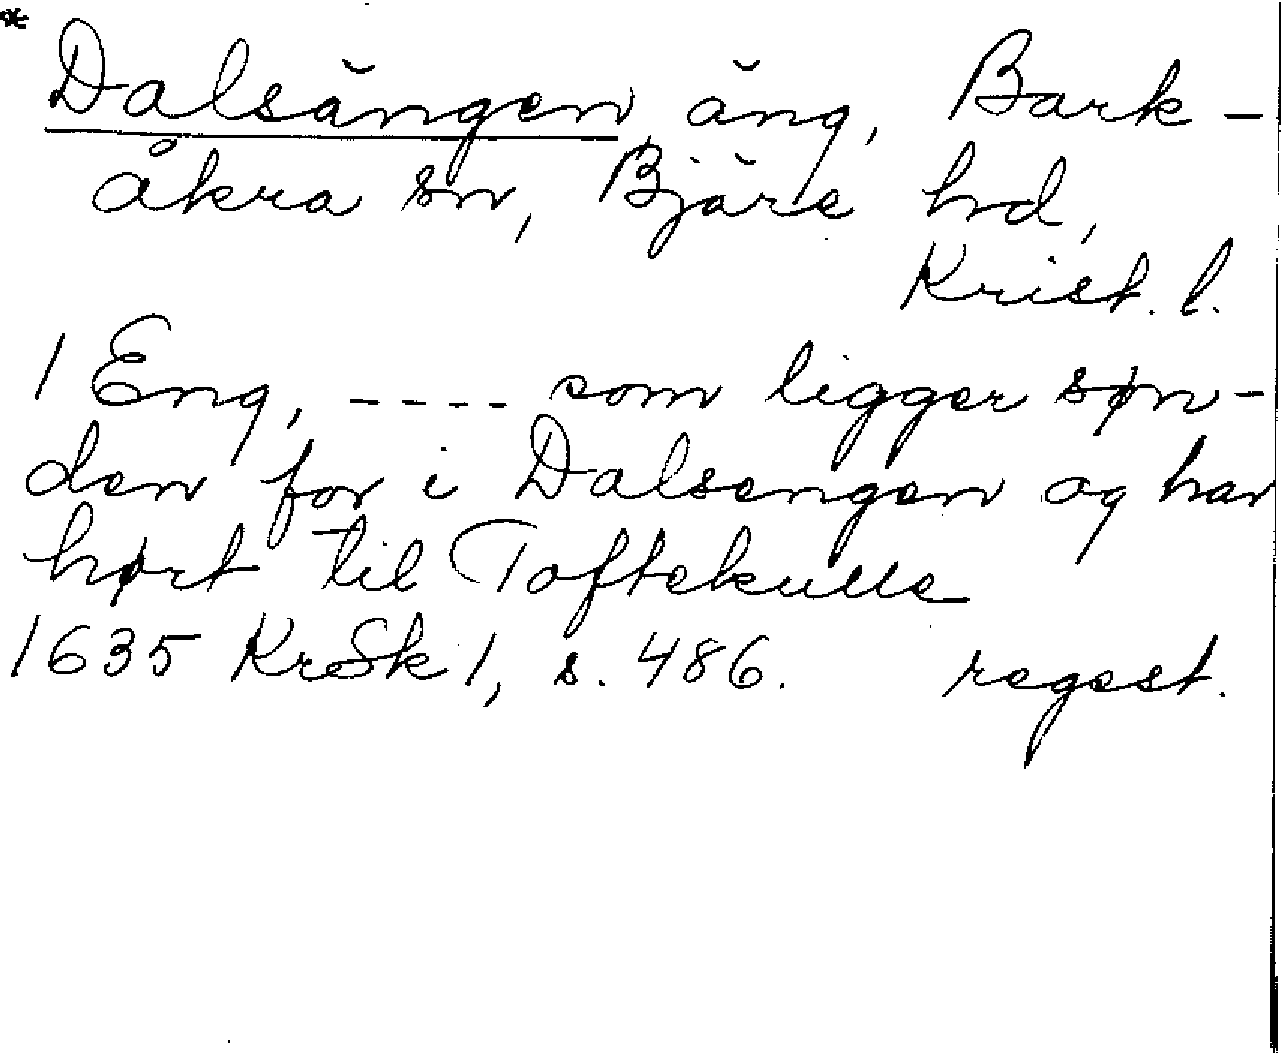 * Dalsängen, äng, Bark-
åkra sn, Bjäre hd,
Krist. l.
1 Eng, ---- som ligger søn-
den for i Dalsengen og har
hørt til Toftekulle
1635 KrSk 1, s. 486. regest.